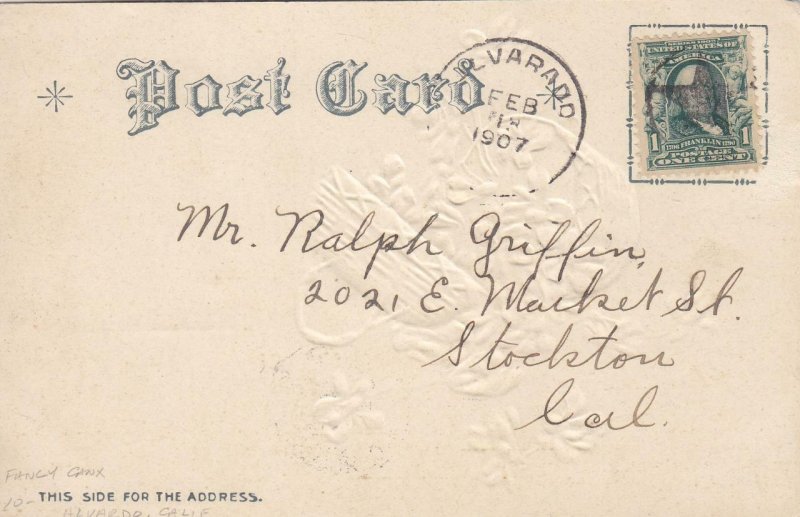 Post Card
ALVARADO
FEB
1907
SERIES 1902
UNITED STATES OF
AMERICA
1 1
FRANKLIN
POSTAGE
ONE CENT
Mr. Ralph Griffin,
2021 E. Market St.
Stockton
Cal.
FANCY CANX
10-
THIS SIDE FOR THE ADDRESS.
ALVARDO, CALIF